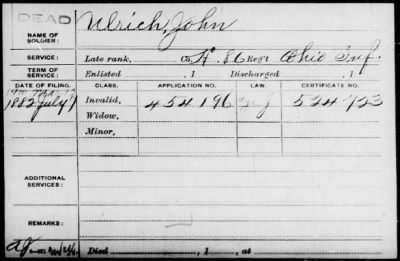 DEAD
NAME OF SOLDIER: Ulrich, John
SERVICE: Late rank, Co. H. 86 Reg't Ohio Inf.
TERM OF SERVICE: Enlisted , 1 Discharged , 1
DATE OF FILING. CLASS. APPLICATION NO. LAW. CERTIFICATE NO.
1882 July Invalid, 454196 524723
Widow,
Minor,
ADDITIONAL SERVICES:
REMARKS:
Died , 1 , at